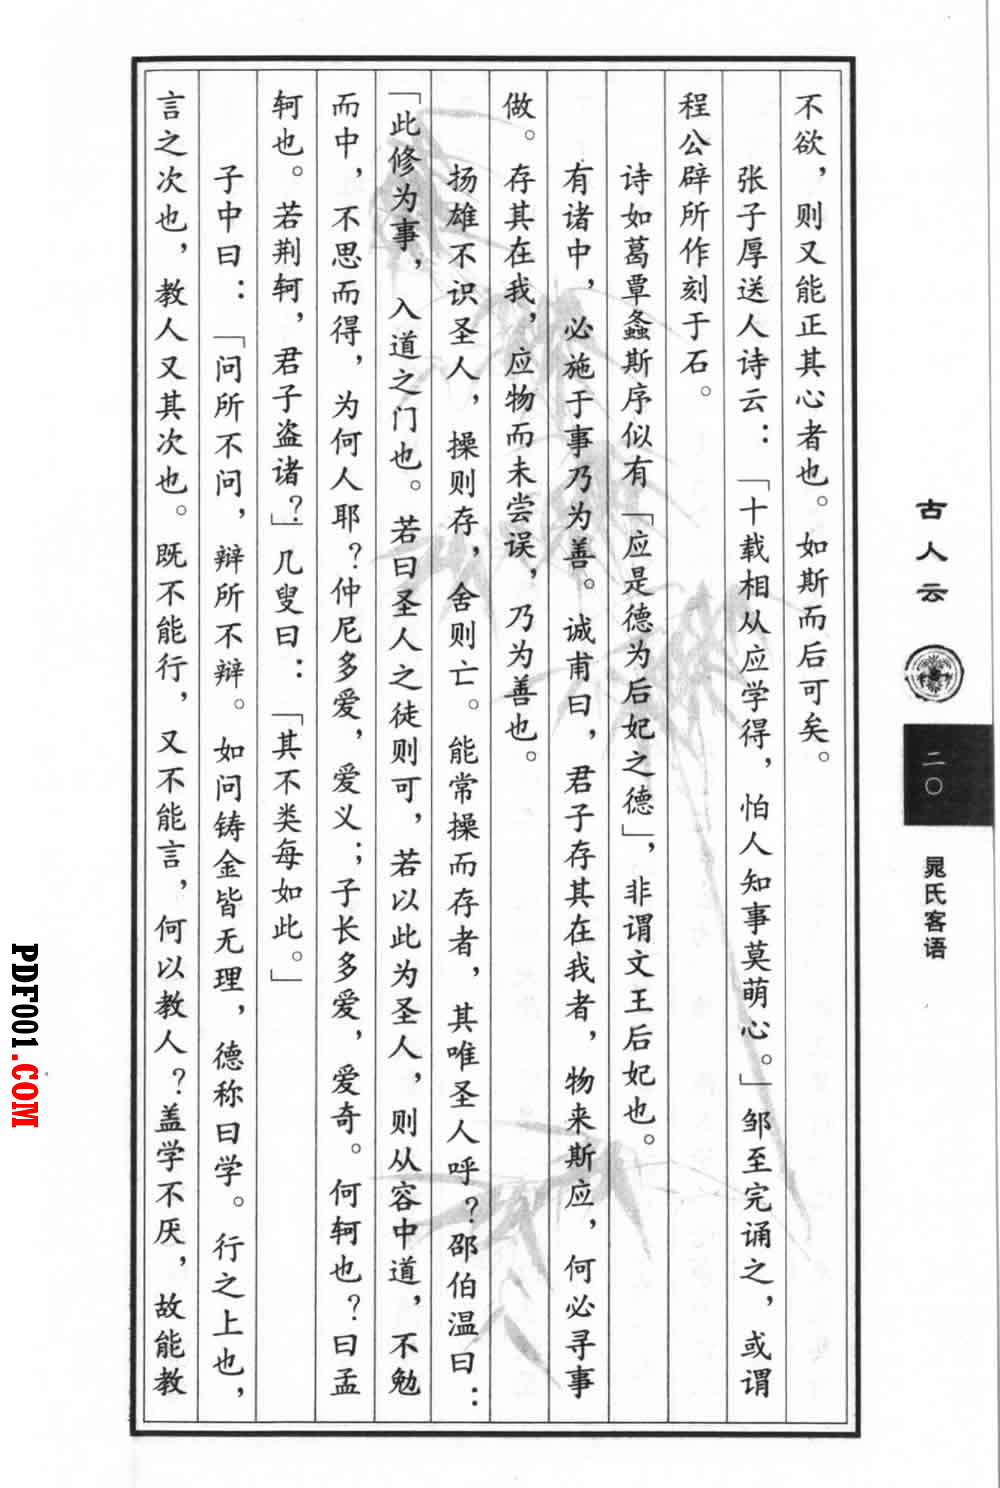 不欲，则又能正其心者也。如斯而后可矣。
张子厚送人诗云：「十载相从应学得，怕人知事莫萌心。」邹至完诵之，或谓
程公辟所作刻于石。
诗如葛覃螽斯序似有「应是德为后妃之德」，非谓文王后妃也。
有诸中，必施于事乃为善。诚甫曰，君子存其在我者，物来斯应，何必寻事
做。存其在我，应物而未尝误，乃为善也。
扬雄不识圣人，操则存，舍则亡。能常操而存者，其唯圣人呼？邵伯温曰：
「此修为事，入道之门也。若曰圣人之徒则可，若以此为圣人，则从容中道，不勉
而中，不思而得，为何人耶？仲尼多爱，爱义；子长多爱，爱奇。何轲也？曰孟
轲也。若荆轲，君子盗诸？」几叟曰：「其不类每如此。」
子中曰：「问所不问，辩所不辩。如问铸金皆无理，德称曰学。行之上也，
言之次也，教人又其次也。既不能行，又不能言，何以教人？盖学不厌，故能教
古人云
二〇
晁氏客语
PDF001.COM